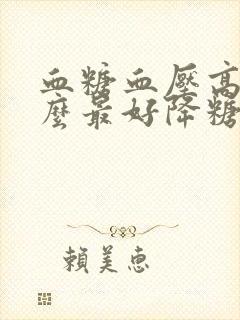 血糖血壓高
麼最好降糖
賴美惠